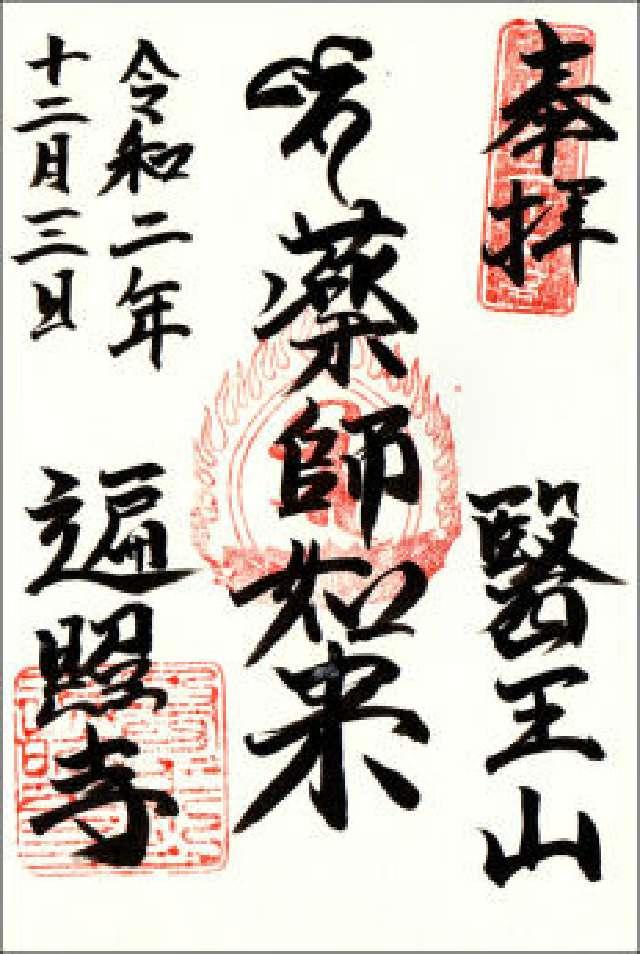 奉拝
醫王山
薬師如来
令和二年
十二月三日
遍照寺